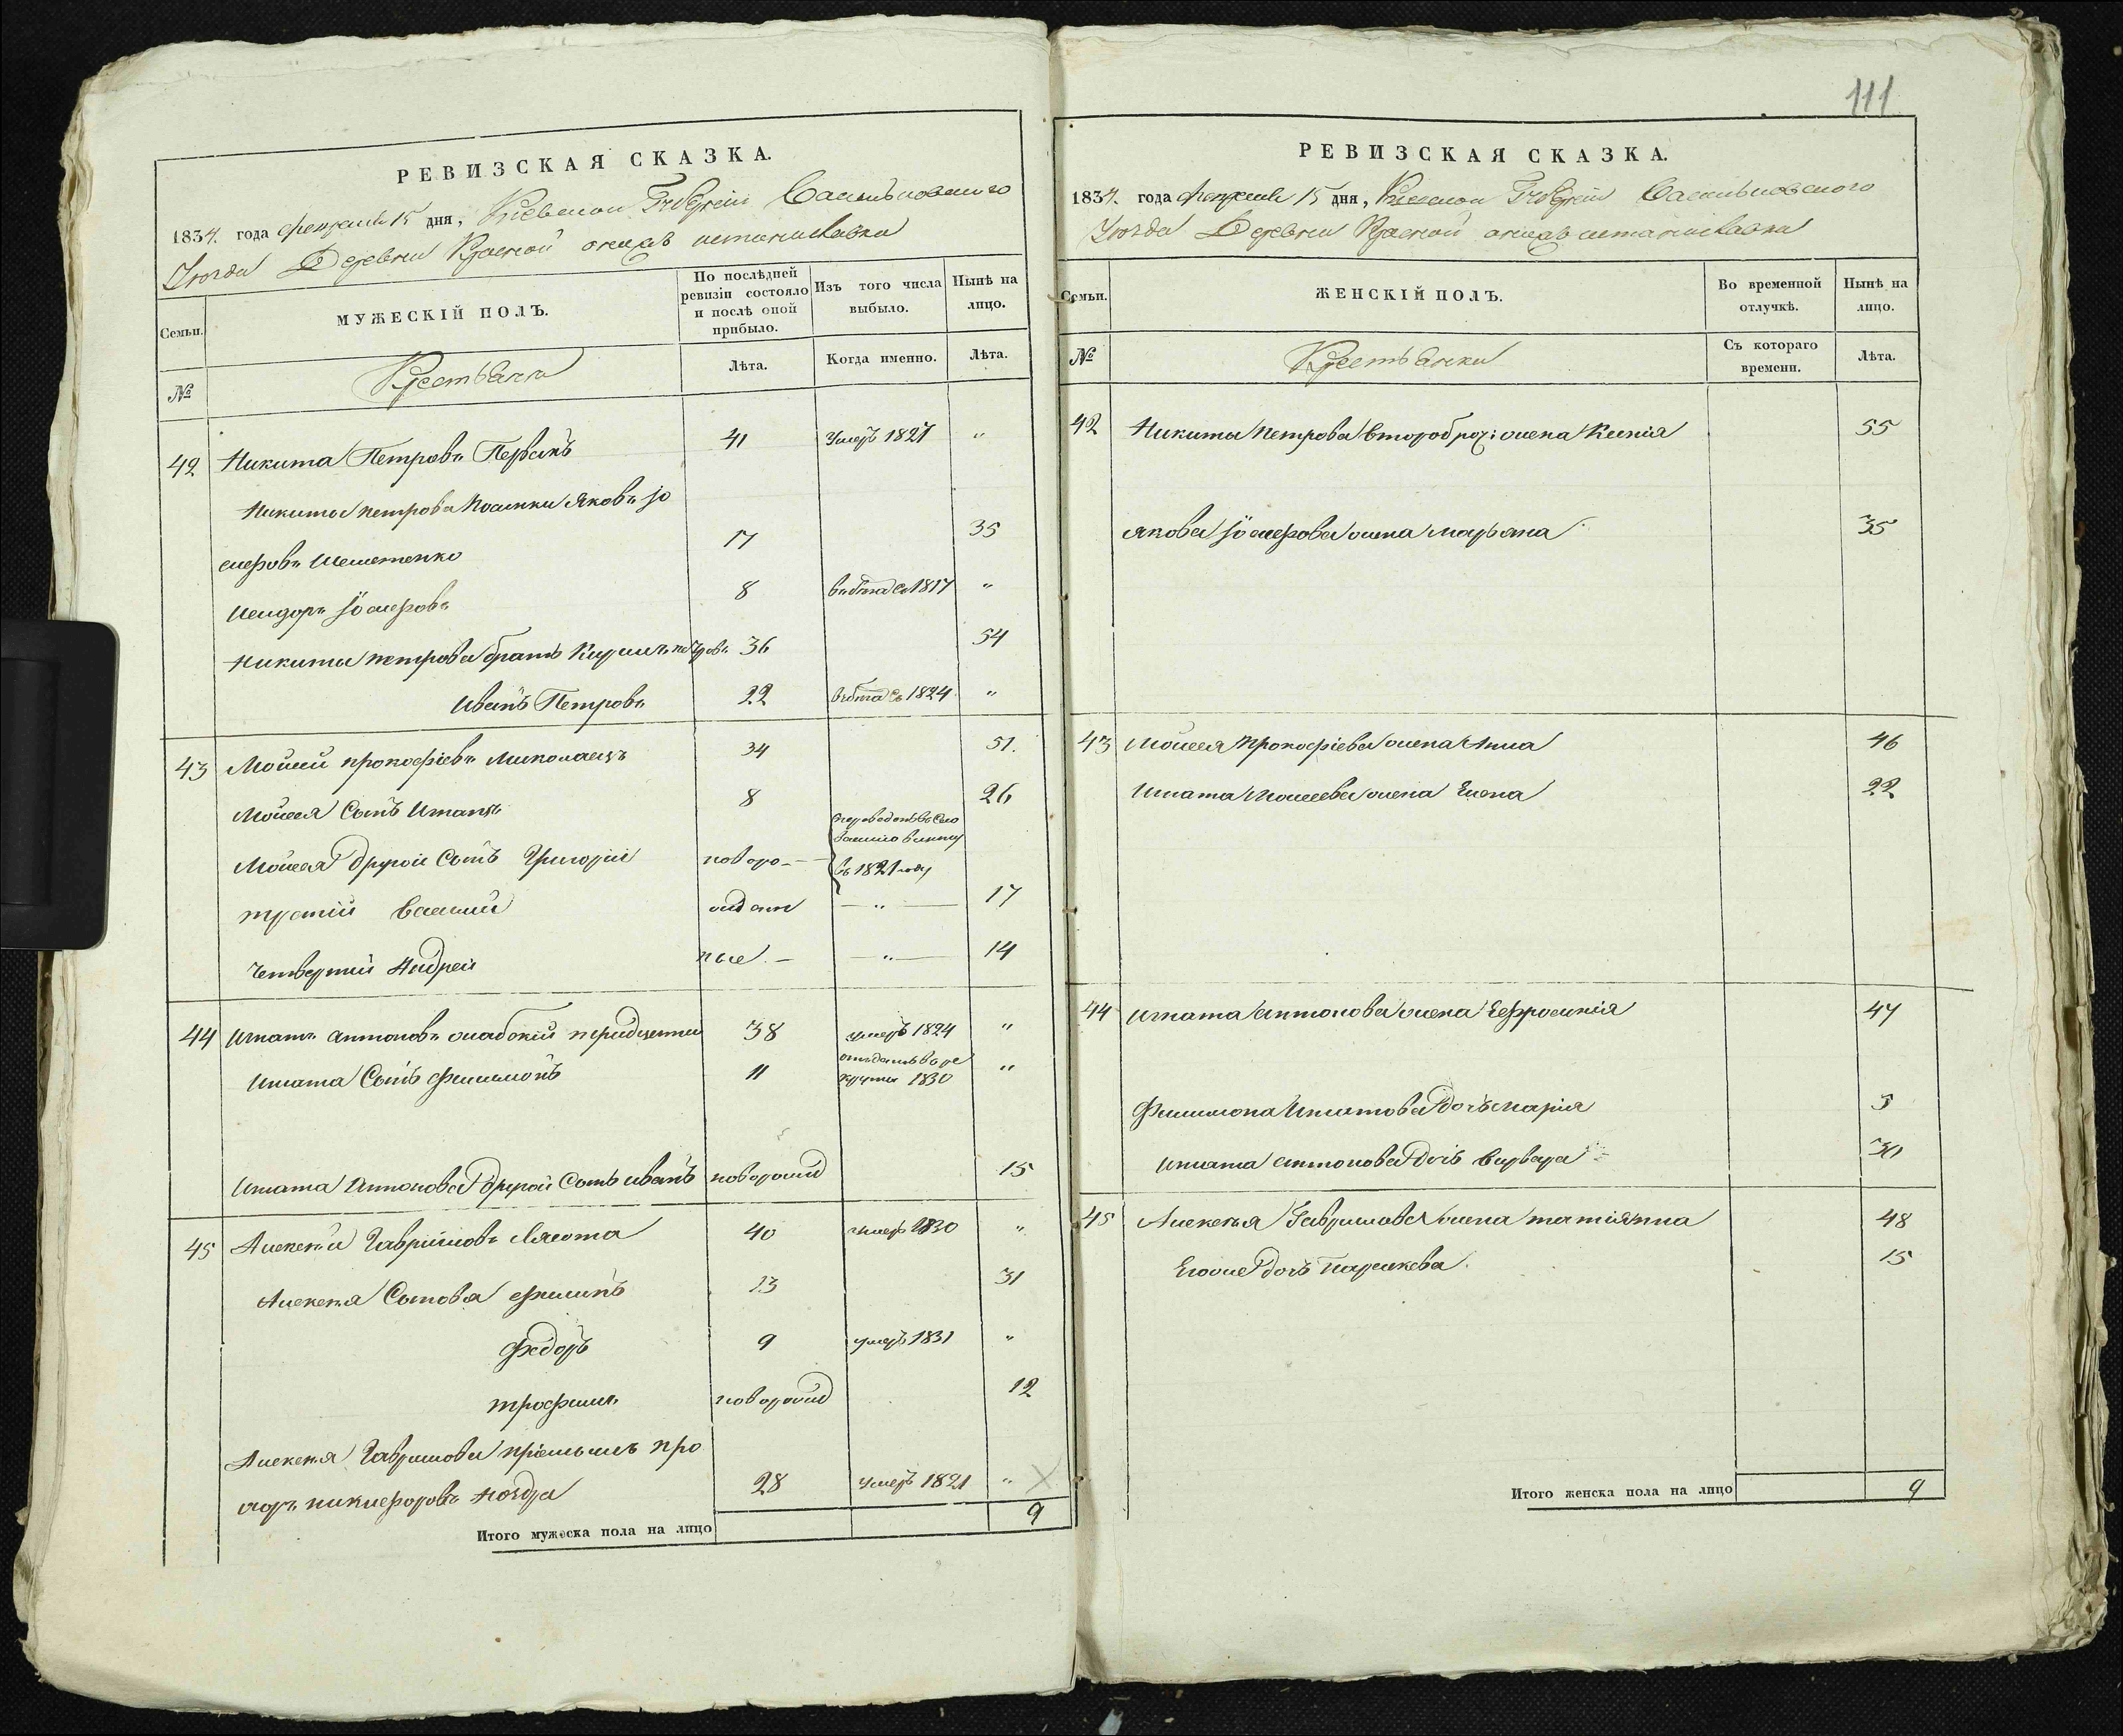 111
РЕВИЗСКАЯ СКАЗКА.
1834. года февраля 15 дня, Киевской Губерніи Васильковскаго
Уезда Деревни Красной онажъ истаниславка
Семьи. МУЖЕСКІЙ ПОЛЪ. По послѣдней ревизіи состояло и послѣ оной прибыло. Изъ того числа выбыло. Нынѣ на лицо.
№ Крестьяни Лѣта. Когда именно. Лѣта.
42 Никита Петровъ Первакъ 41 Умеръ 1827 "
Никиты петрова Яковъ іо
сифовъ Шеметенко 17 35
іосифовъ 8 1817 "
Никиты петрова братъ Кирилъ петровъ 36 54
Иванъ Петровъ 22 1824 "
43 Мойсей прокофіевъ Миколаецъ 34 51.
Мойсея Сынъ Игнатъ 8 26
Мойсея другой Сынъ Григорій новоро- въ 1821 году
третій Василій жденн — " — 17
Четвертий Андрей ные — — " — 14
44 Игнатъ антоновъ 38 умеръ 1824 "
Игната Сынъ филимонъ 11 отъданъ въ ре
круты 1830 "
Игната Антонова другой Сынъ иванъ новорожд 15
45 Алексѣй Гавриловъ Лясота 40 умеръ 1830 "
Алексѣя Сыновья филипъ 13 31
Федоръ 9 умеръ 1831 "
трофимъ новорожд 12
Алексѣя Гаврилова пріемышъ про
хоръ никифоровъ 28 умеръ 1821 "
Итого мужеска пола на лицо 9
РЕВИЗСКАЯ СКАЗКА.
1834. года февраля 15 дня, Киевской Губерніи Васильковскаго
Уезда Деревни Красной онажъ истаниславка
Семьи. ЖЕНСКІЙ ПОЛЪ. Во временной отлучкѣ. Нынѣ на лицо.
№ Крестьянки Съ котораго времени. Лѣта.
42 Никиты петрова второбрач: жена Ксенія 55
Якова іосифова жена марьяна 35
43 Мойсея Прокофіева жена Анна 46
Игната Моисеева жена Елена 22
44 Игната антонова жена Ефросинія 47
Филимона Игнатова дочь марія 5
Игната антонова дочь варвара 30
45 Алексѣя Гаврилова жена татіянна 48
Егоже дочь параскева 15
Итого женска пола на лицо 9